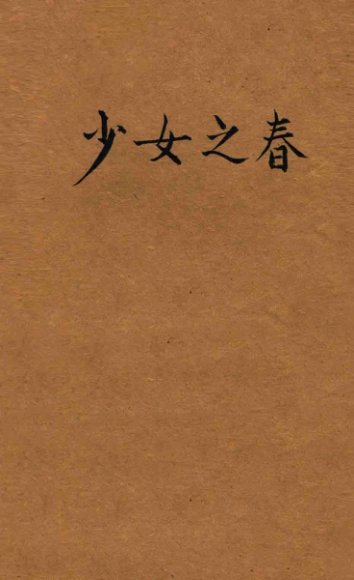 少女之春